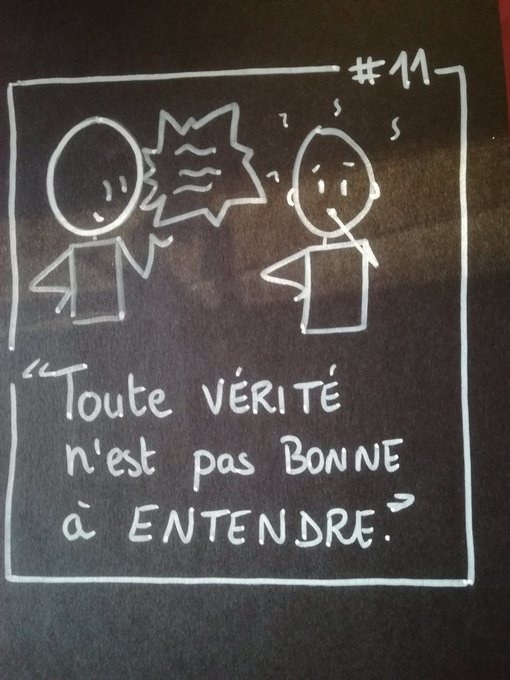 #11
"Toute VÉRITÉ
n'est pas BONNE
à ENTENDRE."